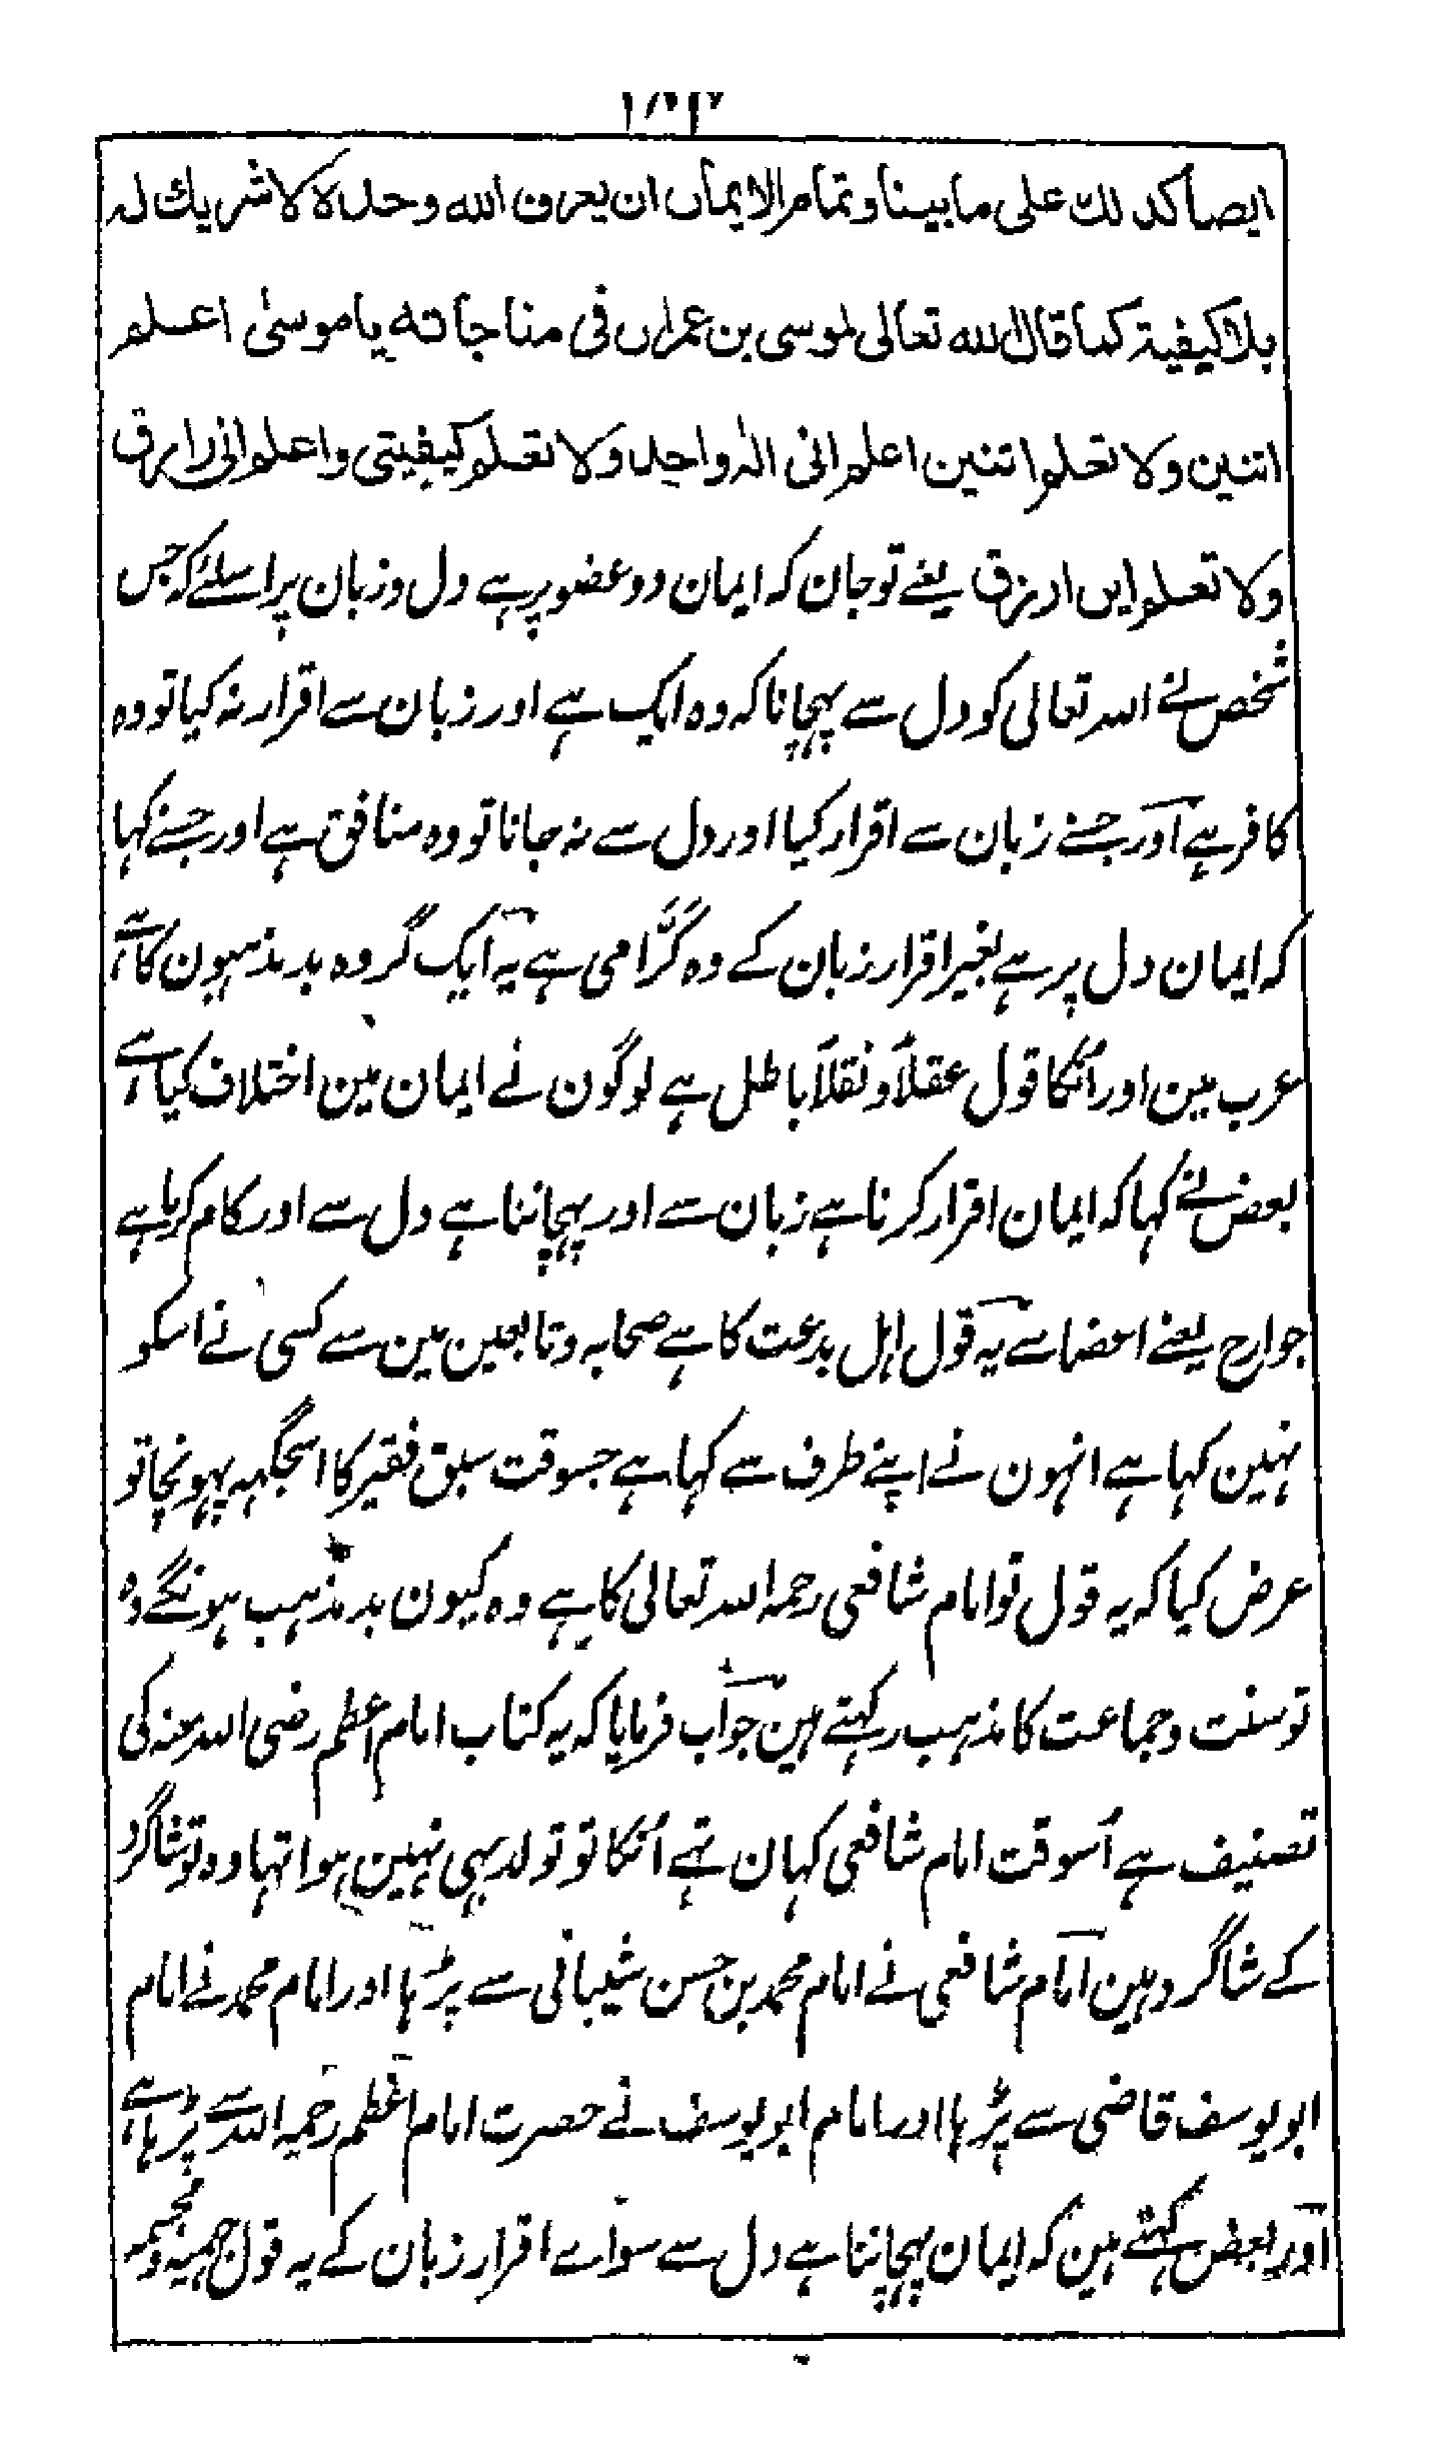 ايضا كذلك على ما بينا وتمام الايمان ان يعرف الله وحده لا شريك له
بلا كيفية كما قال الله تعالى لموسى بن عمران فى مناجاته ياموسىٰ اعلم
اثنين ولا تعلم اثنين اعلم انى الٰه واحد ولا تعلم كيفيتى واعلم انى رازق
ولا تعلم اين ارزق یعنے تو جان کہ ایمان دو عضو پر ہے دل و زبان پر اسلئے کہ جس
شخص نے اللہ تعالی کو دل سے پہچانا کہ وہ ایک ہے اور زبان سے اقرار نہ کیا تو وہ
کافر ہے اور جسنے زبان سے اقرار کیا اور دل سے نہ جانا تو وہ منافق ہے اور جسنے کہا
کہ ایمان دل پر ہے بغیر اقرار زبان کے وہ کَرَّامی ہے یہ ایک گروہ بد مذہبون کا ہے
عرب مین اور اُنکا قول عقلاً و نقلاً باطل ہے لوگون نے ایمان مین اختلاف کیا ہے
بعض نے کہا کہ ایمان اقرار کرنا ہے زبان سے اور پہچاننا ہے دل سے اور کام کرنا ہے
جوارح یعنے اعضا سے یہ قول اہل بدعت کا ہے صحابہ و تابعین مین سے کسی نے اسکو
نہین کہا ہے انہون نے اپنے طرف سے کہا ہے جسوقت سبق فقیر کا اسجگہہ پہونچا تو
عرض کیا کہ یہ قول تو امام شافعی رحمہ اللہ تعالی کا ہے وہ کیون بد مذہب ہونگے وہ
تو سنت و جماعت کا مذہب رکہتے ہین جواب فرمایا کہ یہ کتاب امام اعظم رضی اللہ عنہ کی
تصنیف ہے اُسوقت امام شافعی کہان تہے اُنکا تو تولد بہی نہین ہوا تہا وہ تو شاگرد
کے شاگرد ہین امام شافعی نے امام محمد بن حسن شیبانی سے پڑہا اور امام محمد نے امام
ابو یوسف قاضی سے پڑہا اور امام ابو یوسف نے حضرت امام اعظم رحمہ اللہ سے پڑہا ہے
اور بعض کہتے ہین کہ ایمان پہچاننا ہے دل سے سواے اقرار زبان کے یہ قول جہمیہ و مجسمہ